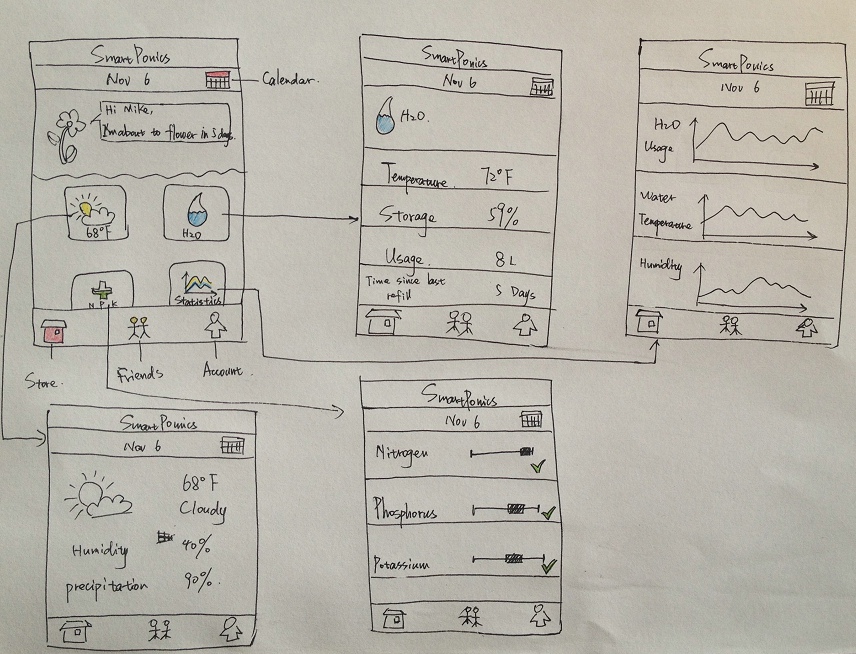 SmartPonics
Nov 6
Calendar.
Hi Mike,
I'm about to flower in 3 days.
68°F
H2O
N P K
Statistics
Store.
Friends
Account.
SmartPonics
Nov 6
H2O.
Temperature 72°F
Storage 59%
Usage 8L
Time since last
refill
5 Days
SmartPonics
Nov 6
H2O
Usage
Water
Temperature
Humidity
SmartPonics
Nov 6
68°F
Cloudy
Humidity 40%
precipitation 90%.
SmartPonics
Nov 6
Nitrogen
Phosphorus
Potassium